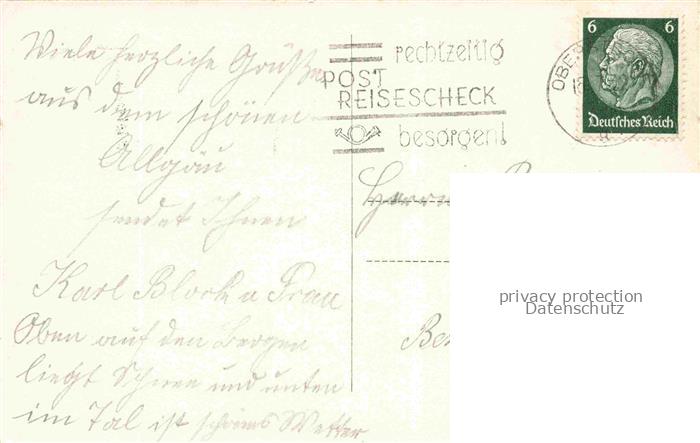 Viele herzliche Grüße
aus dem schönen
Allgäu
sendet Ihnen
Karl Block u Frau
Oben auf den Bergen
liegt Schnee und unten
im Tal ist schönes Wetter.
rechtzeitig
POST
REISESCHECK
besorgen!
OBERS
6 6
Deutsches Reich
Herrn
privacy protection
Datenschutz